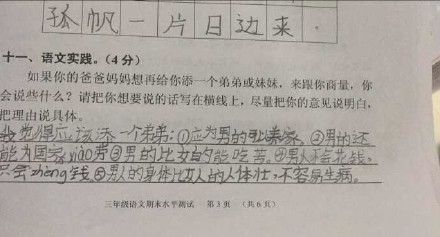 孤帆一片日边来.
十一、语文实践。(4分)
如果你的爸爸妈妈想再给你添一个弟弟或妹妹，来跟你商量，你
会说些什么？请把你想要说的话写在横线上，尽量把你的意见说明白，
把理由说具体。
我觉得应该添一个弟弟：①应为男的 养家。②男的还
能为国家yiao劳③男的比女的能吃苦。④男人不会花钱，
只会zhèng钱⑤男人的身体比女人的人体壮，不容易生病。
三年级语文期末水平测试 第3页 （共6页）